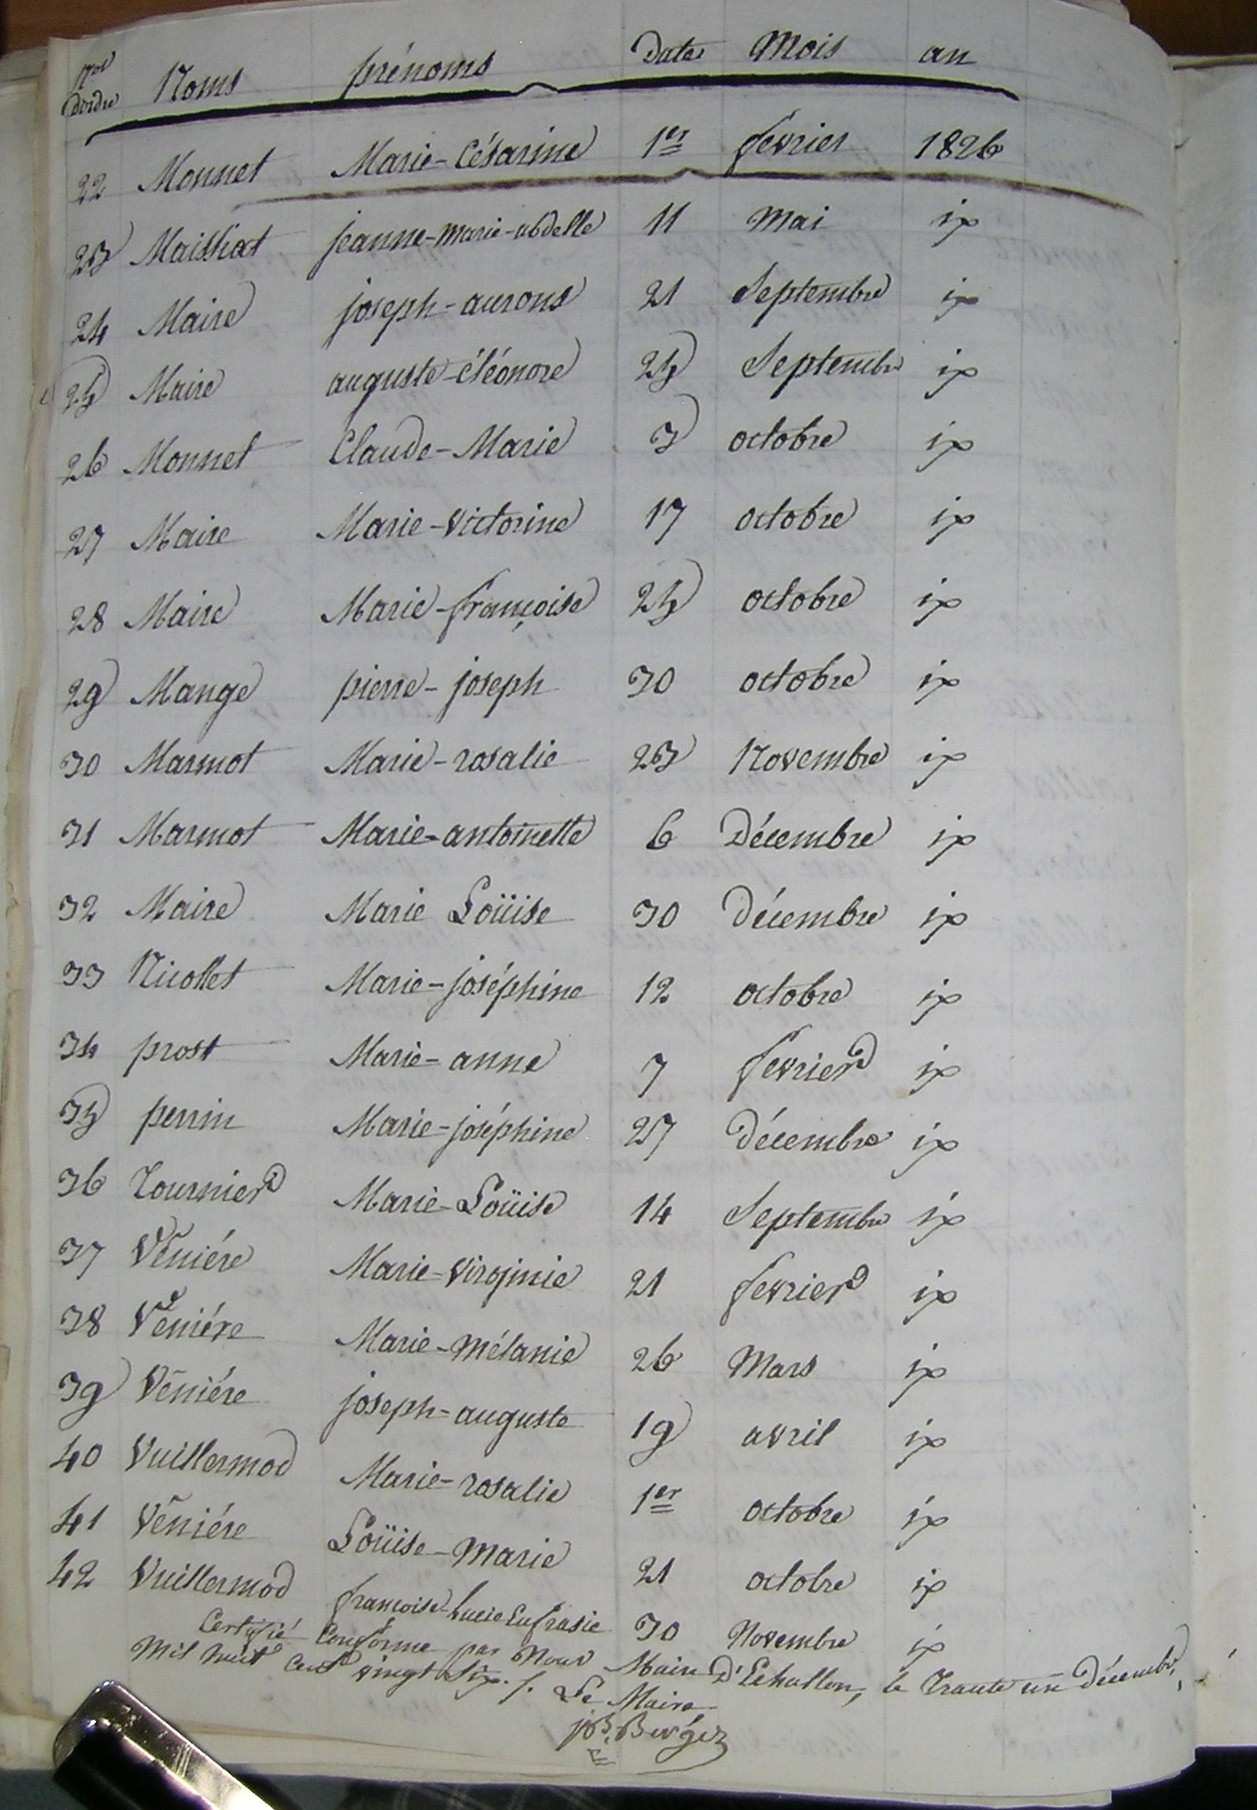 Nos d'ordre Noms prénoms Date Mois an
22 Monnet Marie-Césarine 1er février 1826
23 Maissiat jeanne-marie-abdelle 11 mai ix
24 Maire joseph-aurons 21 Septembre ix
25 Maire auguste-éléonore 25 Septembre ix
26 Monnet Claude-Marie 3 octobre ix
27 Maire Marie-victorine 17 octobre ix
28 Maire Marie-françoise 25 octobre ix
29 Mange pierre-joseph 30 octobre ix
30 Marmot Marie-rosalie 23 Novembre ix
31 Marmot Marie-antoinette 6 Décembre ix
32 Maire Marie Loüise 30 Décembre ix
33 Nicollet Marie-joséphine 12 octobre ix
34 prost Marie-anne 7 fevrier ix
35 perrin Marie-joséphine 27 Décembre ix
36 Tournier Marie-Loüise 14 Septembre ix
37 Véniére Marie-Virginie 21 fevrier ix
38 Véniére Marie-mélanie 26 Mars ix
39 Véniére joseph-auguste 19 avril ix
40 Vuillermod Marie-rosalie 1er octobre ix
41 Véniére Loüise-marie 21 octobre ix
42 Vuillermod françoise-Lucie Eufrasie 30 Novembre ix
Certifié Conforme par Nous Maire D'Echallon, le Trante un Décembre,
Mil huit Cent vingt Six ./. Le Maire